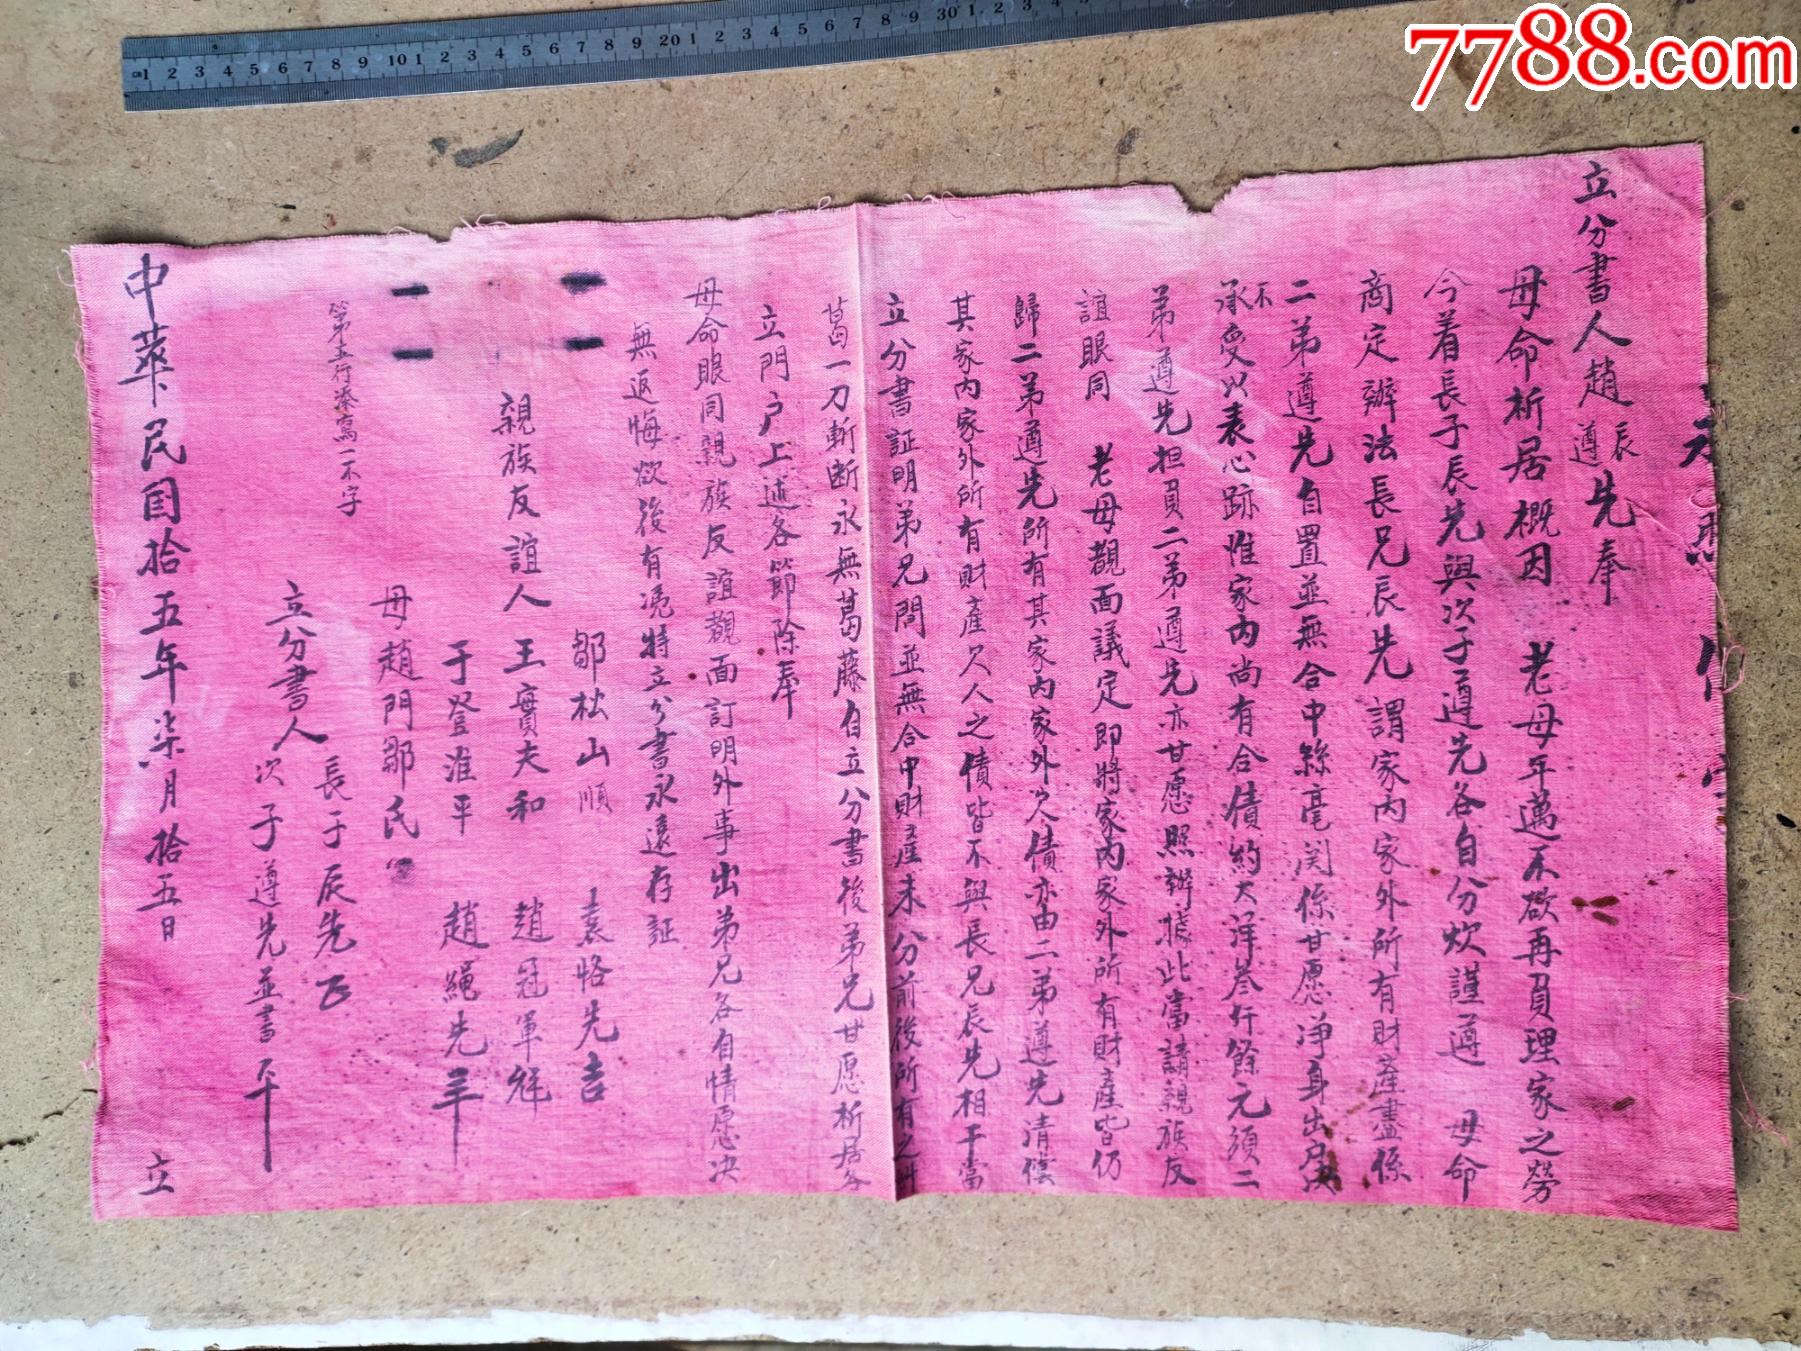 立分書人趙辰遵先奉
母命析居概因 老母年邁不欲再負理家之勞
今着長子辰先與次子遵先各自分炊謹遵 母命
商定辦法長兄辰先謂家内家外所有財產盡係
二弟遵先自置並無合中絲毫関係甘愿净身出戶决
不承受以表心跡惟家内尚有合債約大洋叁仟餘元須二
弟遵先担負二弟遵先亦甘愿照辦據此當請親族友
誼眼同 老母覩面議定即將家内家外所有財產皆仍
歸二弟遵先所有其家内家外欠債亦由二弟遵先清償
其家内家外所有財產欠人之債皆不與長兄辰先相干當
立分書証明弟兄間並無合中財產未分前後所有之
葛一刀斬断永無葛藤自立分書後弟兄甘愿析居各
立門户上述各節除奉
母命眼同親族友誼覩面訂明外事出弟兄各自情愿决
無返悔欲後有凴特立分書永遠存証
鄒松山順 袁恪先吉
親族友誼人 王實夫和 趙冠軍祥
于登淮平 趙繩先羊
母趙門鄒氏
第五行添寫一不字
長子辰先
立分書人
次子遵先並書
中華民国拾五年柒月拾五日 立
7788.com
1 2 3 4 5 6 7 8 9 10 1 2 3 4 5 6 7 8 9 20 1 2 3 4 5 6 7 8 9 30 1 2 3 4